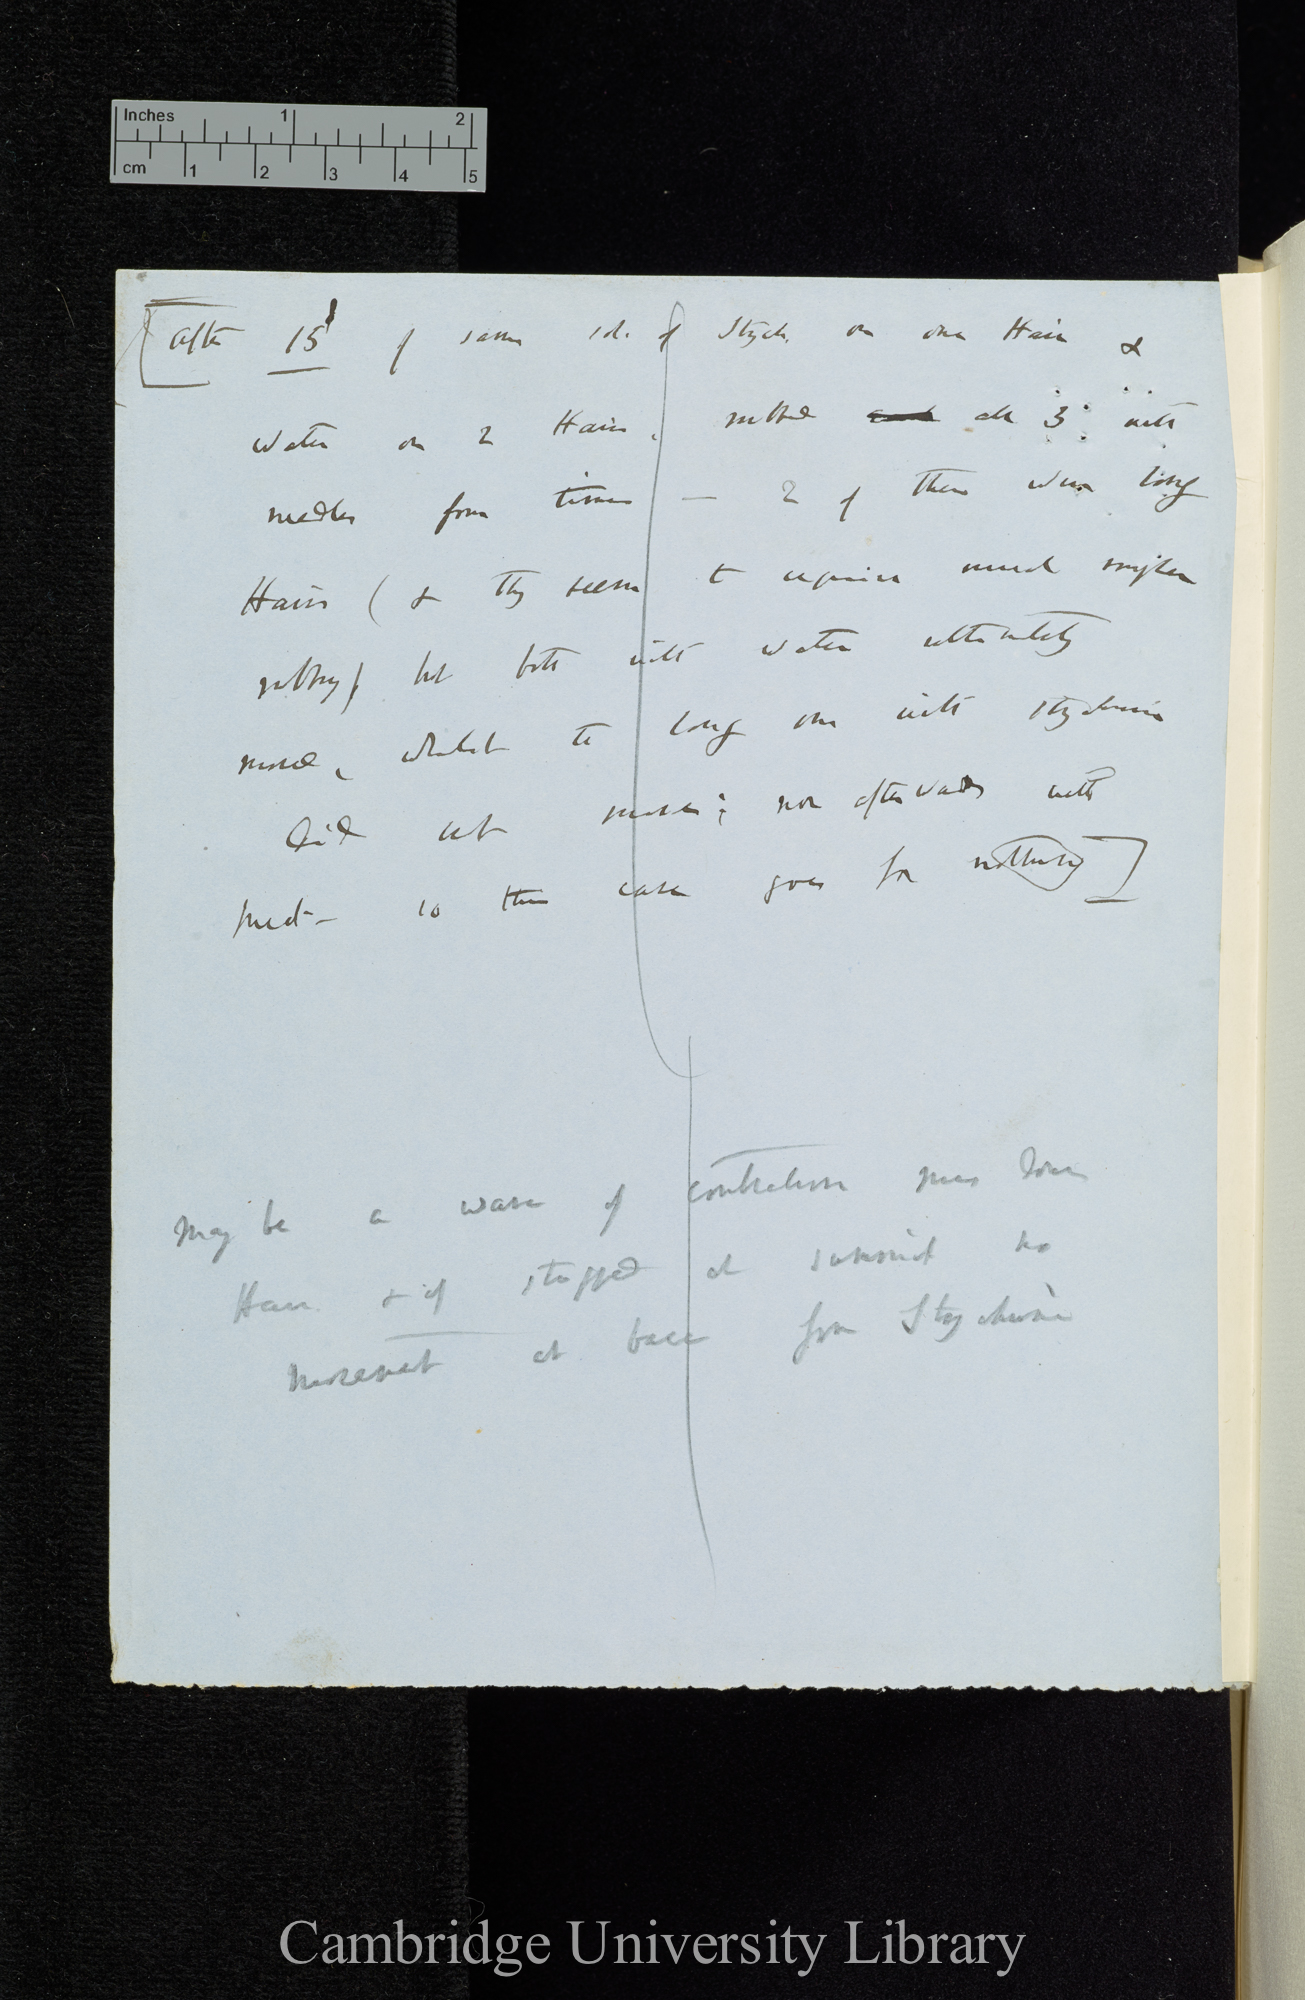 Inches 1 2
cm 1 2 3 4 5
[After 15' of same sol. of Strych. on one Hair &
water on 2 Hairs, rubbed all 3 with
needles four times — 2 of them were long
Hairs (& they seem to require much rougher
rubbing) but both with water ultimately
moved, whilst the long one with strychnine
did not move; nor afterwards with
meat — so this case goes for nothing]
May be a wave of contraction down
Hair & if stopped at summit no
movement at base from Strychnine
Cambridge University Library